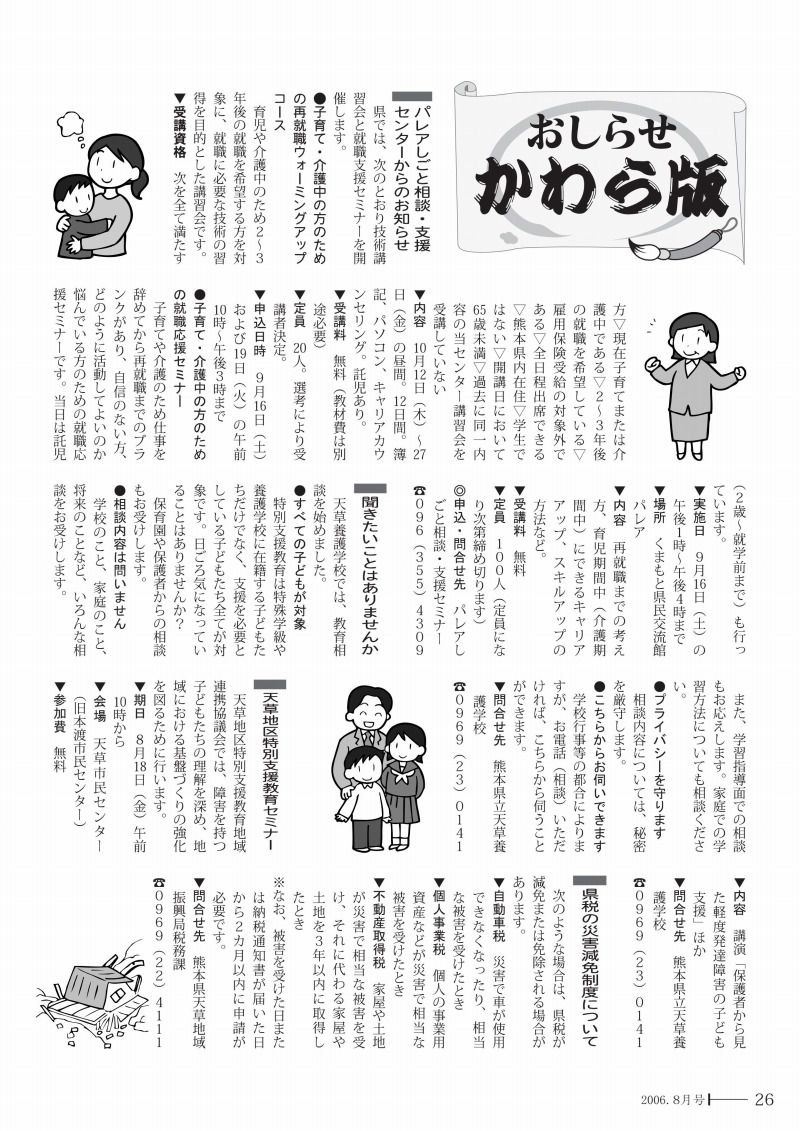 おしらせ
かわら版
パレアしごと相談・支援
センターからのお知らせ
県では、次のとおり技術講
習会と就職支援セミナーを開
催します。
●子育て・介護中の方のため
の再就職ウォーミングアップ
コース
育児や介護中のため2～3
年後の就職を希望する方を対
象に、就職に必要な技術の習
得を目的とした講習会です。
▼受講資格 次を全て満たす
方▽現在子育てまたは介
護中である▽2～3年後
の就職を希望している▽
雇用保険受給の対象外で
ある▽全日程出席できる
▽熊本県内在住▽学生で
はない▽開講日において
65歳未満▽過去に同一内
容の当センター講習会を
受講していない
▼内容 10月12日（木）～27
日（金）の昼間。12日間。簿
記、パソコン、キャリアカウ
ンセリング。託児あり。
▼受講料 無料（教材費は別
途必要）
▼定員 20人。選考により受
講者決定。
▼申込日時 9月16日（土）
および19日（火）の午前
10時～午後3時まで
●子育て・介護中の方のため
の就職応援セミナー
子育てや介護のため仕事を
辞めてから再就職までのブラ
ンクがあり、自信のない方、
どのように活動してよいのか
悩んでいる方のための就職応
援セミナーです。当日は託児
（2歳～就学前まで）も行っ
ています。
▼実施日 9月16日（土）の
午後1時～午後4時まで
▼場所 くまもと県民交流館
パレア
▼内容 再就職までの考え
方、育児期間中（介護期
間中）にできるキャリア
アップ、スキルアップの
方法など。
▼受講料 無料
▼定員 100人（定員にな
り次第締め切ります）
◎申込・問合せ先 パレアし
ごと相談・支援セミナー
☎096（355）4309
聞きたいことはありませんか
天草養護学校では、教育相
談を始めました。
●すべての子どもが対象
特別支援教育は特殊学級や
養護学校に在籍する子どもた
ちだけでなく、支援を必要と
している子どもたち全てが対
象です。日ごろ気になってい
ることはありませんか？
保育園や保護者からの相談
もお受けします。
●相談内容は問いません
学校のこと、家庭のこと、
将来のことなど、いろんな相
談をお受けします。
また、学習指導面での相談
もお応えします。家庭での学
習方法についても相談くださ
い。
●プライバシーを守ります
相談内容については、秘密
を厳守します。
●こちらからお伺いできます
学校行事等の都合によりま
すが、お電話（相談）いただ
ければ、こちらから伺うこと
ができます。
▼問合せ先 熊本県立天草養
護学校
☎0969（23）0141
天草地区特別支援教育セミナー
天草地区特別支援教育地域
連携協議会では、障害を持つ
子どもたちの理解を深め、地
域における基盤づくりの強化
を図るために行います。
▼期日 8月18日（金）午前
10時から
▼会場 天草市民センター
（旧本渡市民センター）
▼参加費 無料
▼内容 講演「保護者から見
た軽度発達障害の子ども
支援」ほか
▼問合せ先 熊本県立天草養
護学校
☎0969（23）0141
県税の災害減免制度について
次のような場合は、県税が
減免または免除される場合が
あります。
▼自動車税 災害で車が使用
できなくなったり、相当
な被害を受けたとき
▼個人事業税 個人の事業用
資産などが災害で相当な
被害を受けたとき
▼不動産取得税 家屋や土地
が災害で相当な被害を受
け、それに代わる家屋や
土地を3年以内に取得し
たとき
※なお、被害を受けた日また
は納税通知書が届いた日
から2カ月以内に申請が
必要です。
▼問合せ先 熊本県天草地域
振興局税務課
☎0969（22）4111
2006.8月号 26